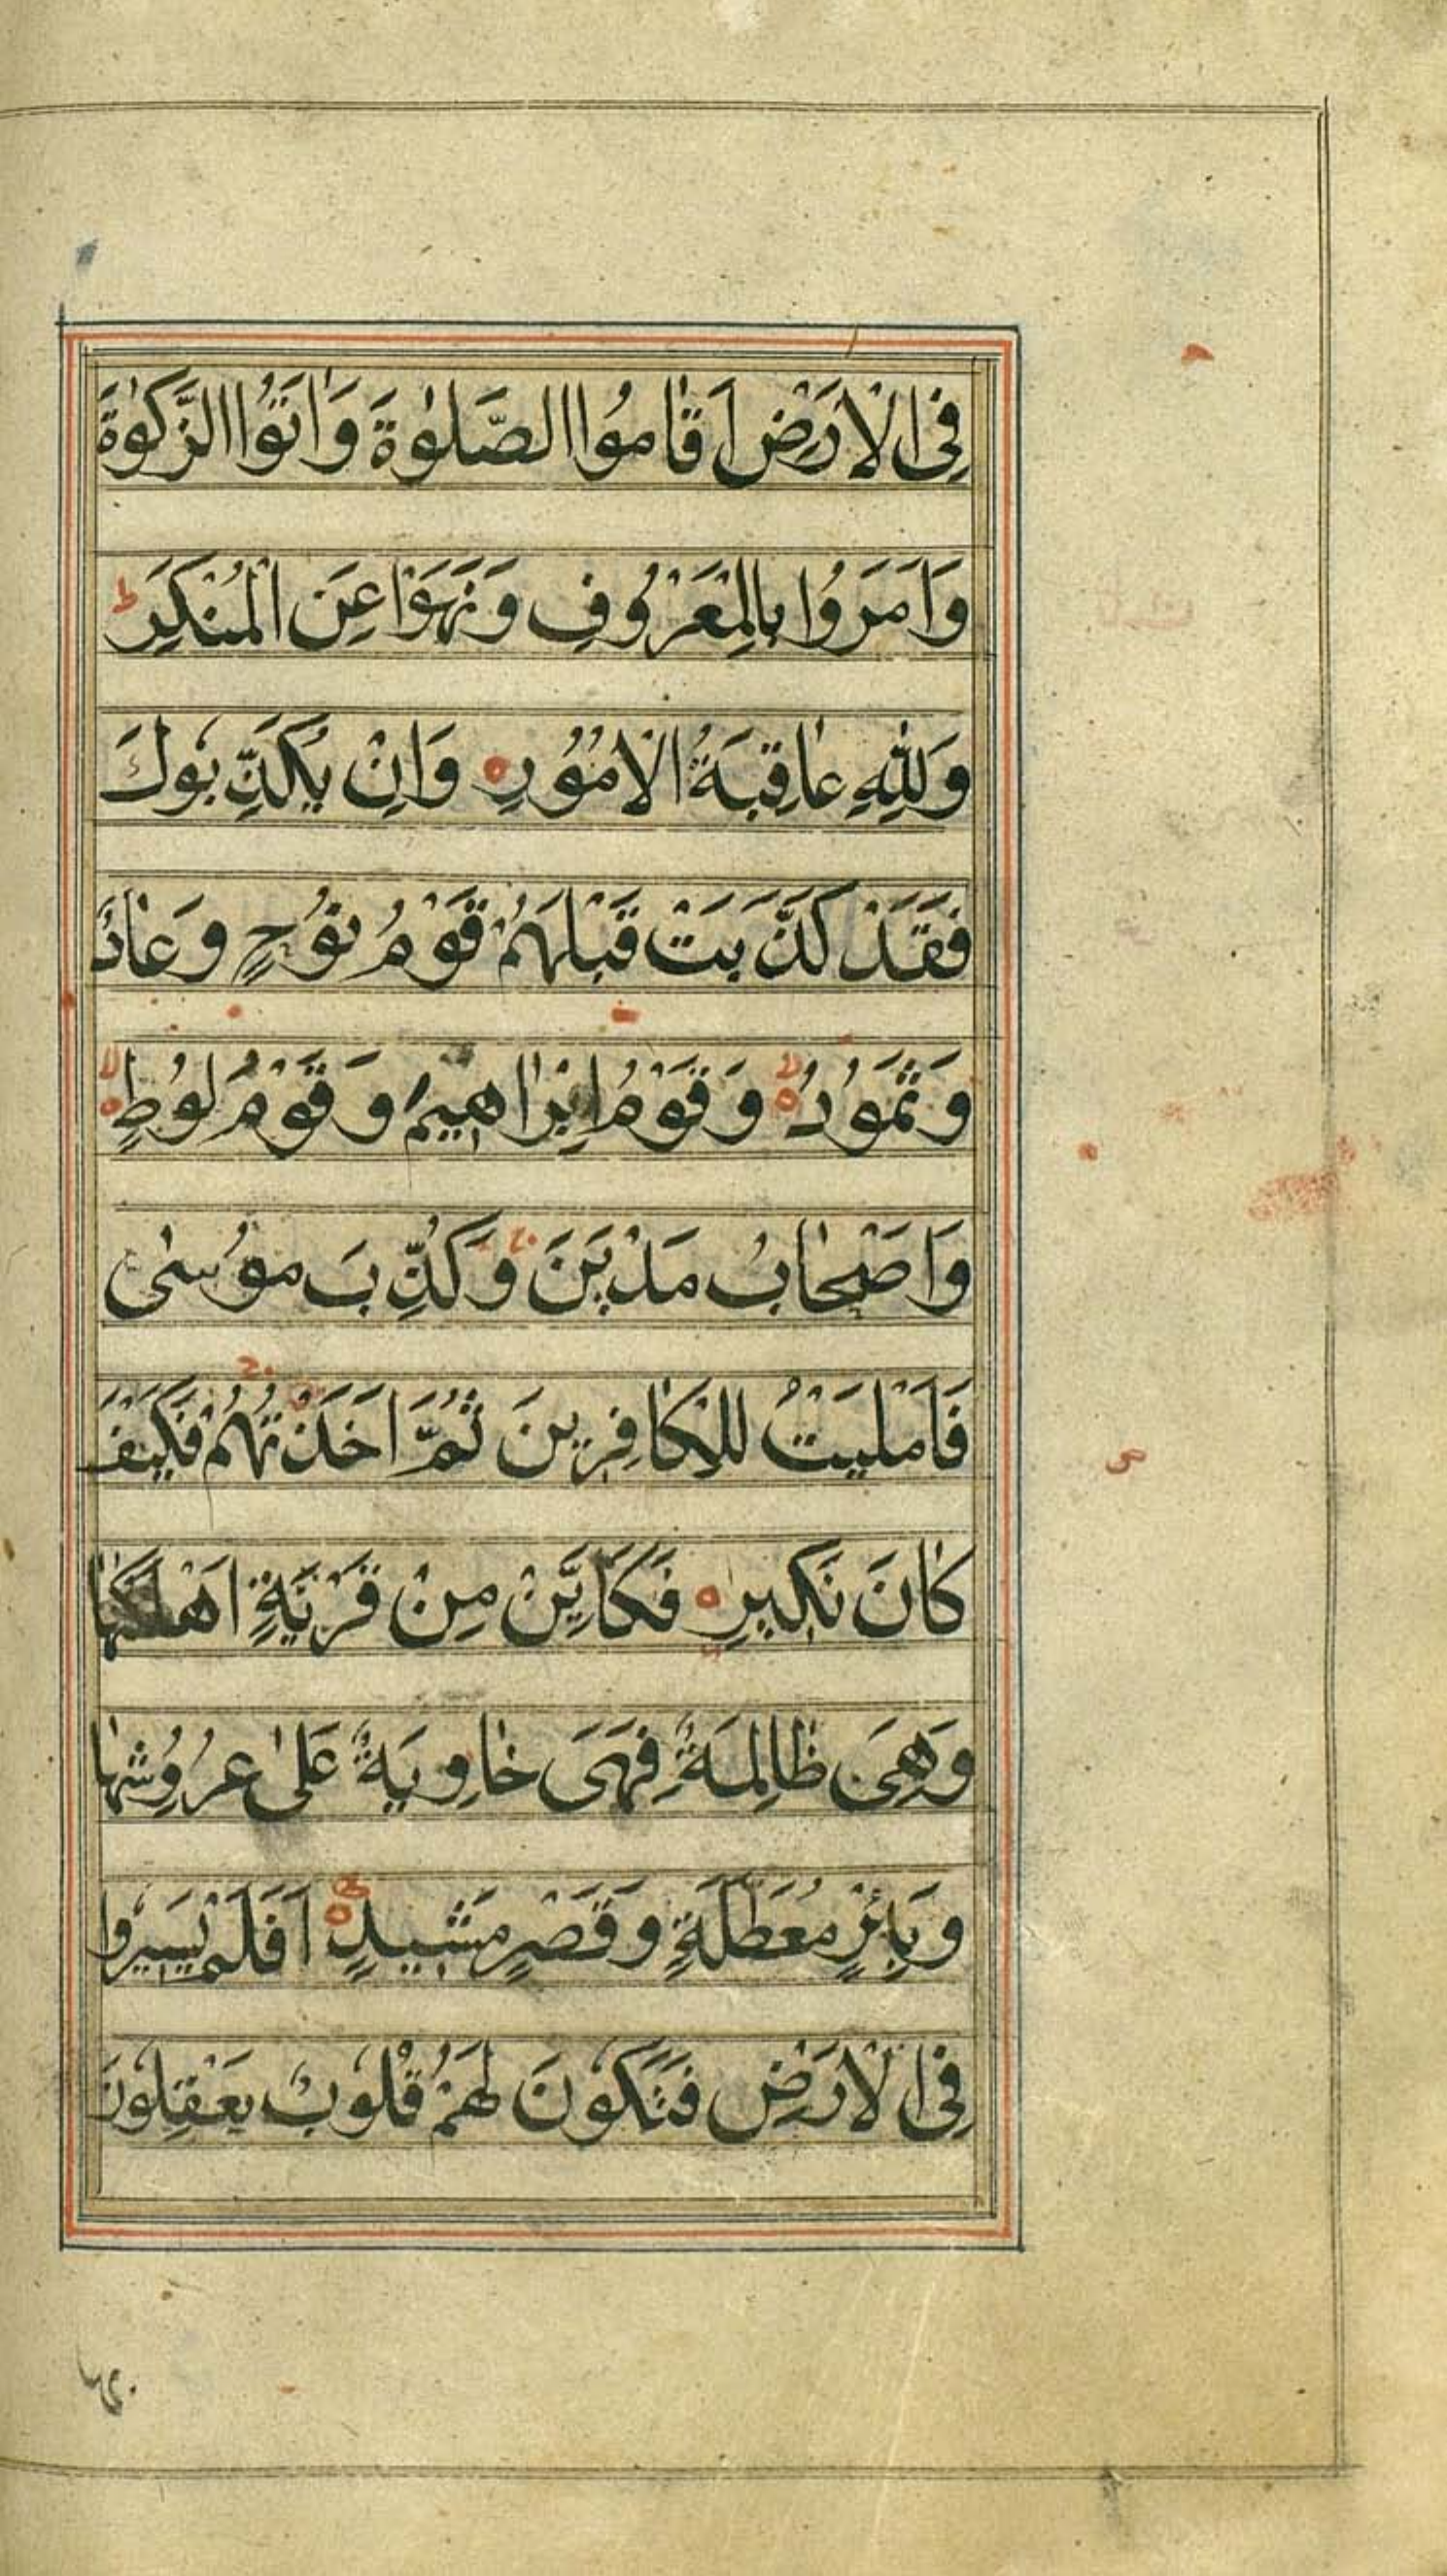 فِی الْاَرْضِ اَقَامُوا الصَّلٰوةَ وَاٰتَوُا الزَّكٰوةَ
وَاَمَرُوا بِالْمَعْرُوفِ وَنَهَوْا عَنِ الْمُنْكَرِ ط
وَلِلّٰهِ عَاقِبَةُ الْاُمُوْرِ ه وَاِنْ يُكَذِّبُوكَ
فَقَدْ كَذَّبَتْ قَبْلَهُمْ قَوْمُ نُوْحٍ وَعَادٌ
وَثَمُوْدُ لا ه وَقَوْمُ اِبْرَاهِيْمَ وَقَوْمُ لُوْطٍ لا ه
وَاَصْحَابُ مَدْيَنَ وَكُذِّبَ مُوْسٰى
فَاَمْلَيْتُ لِلْكَافِرِينَ ثُمَّ اَخَذْتُهُمْ فَكَيْفَ
كَانَ نَكِيرِ ه فَكَاَيِّنْ مِنْ قَرْيَةٍ اَهْلَكْنَاهَا
وَهِيَ ظَالِمَةٌ فَهِيَ خَاوِيَةٌ عَلٰى عُرُوْشِهَا
وَبِئْرٍ مُعَطَّلَةٍ وَقَصْرٍ مَشِيدٍ ه اَفَلَمْ يَسِيرُوا
فِی الْاَرْضِ فَتَكُوْنَ لَهُمْ قُلُوبٌ يَعْقِلُوْنَ